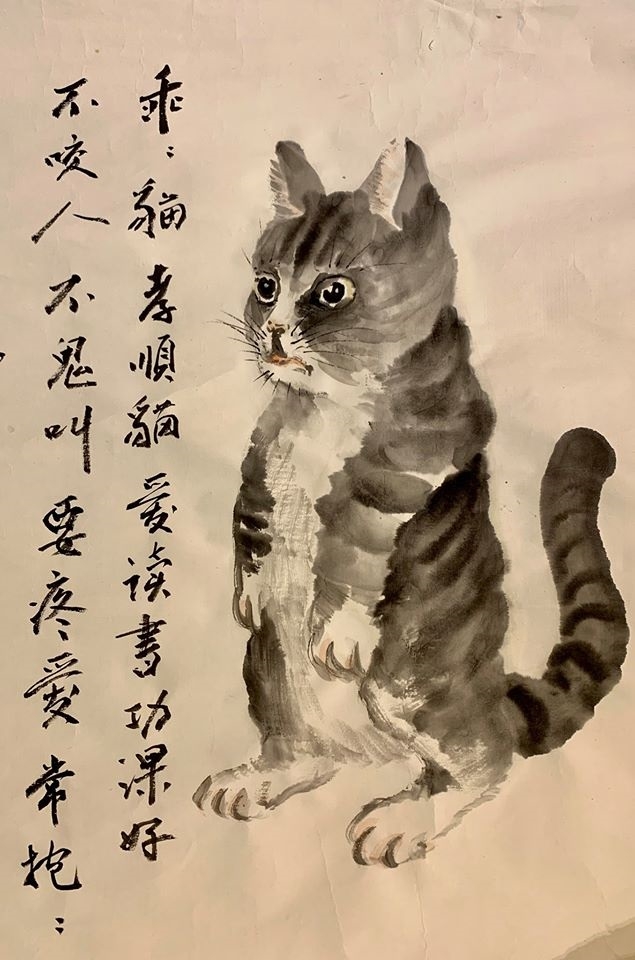 乖:貓孝順貓愛讀書功課好
不咬人不鬼叫要疼愛常抱: